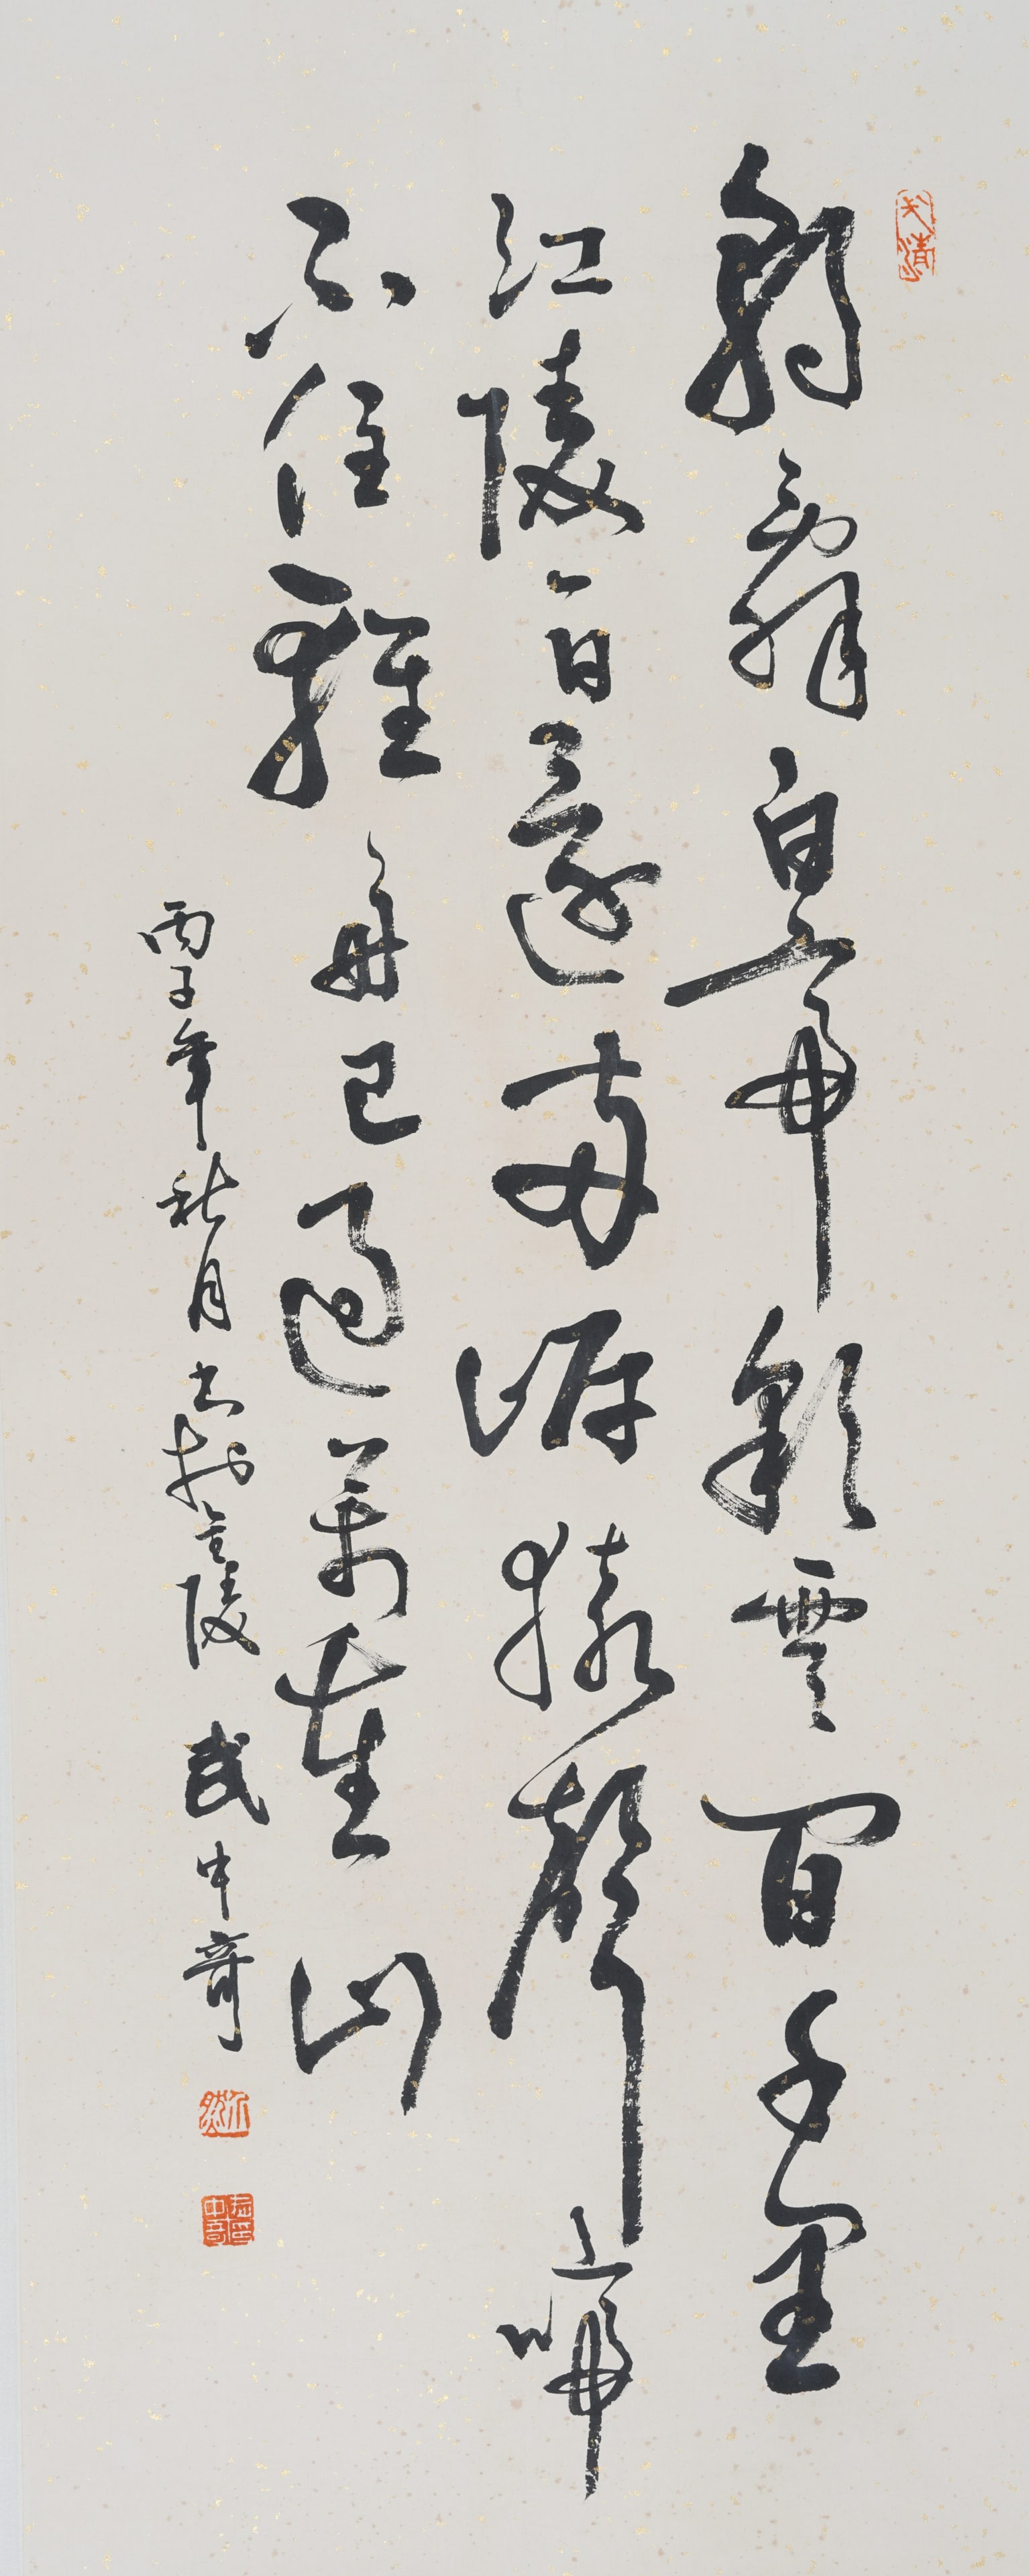 朝辭白帝彩雲間千里
江陵一日還兩岸猿聲啼
不住輕舟已過萬重山
丙子年秋月書於金陵 武中奇